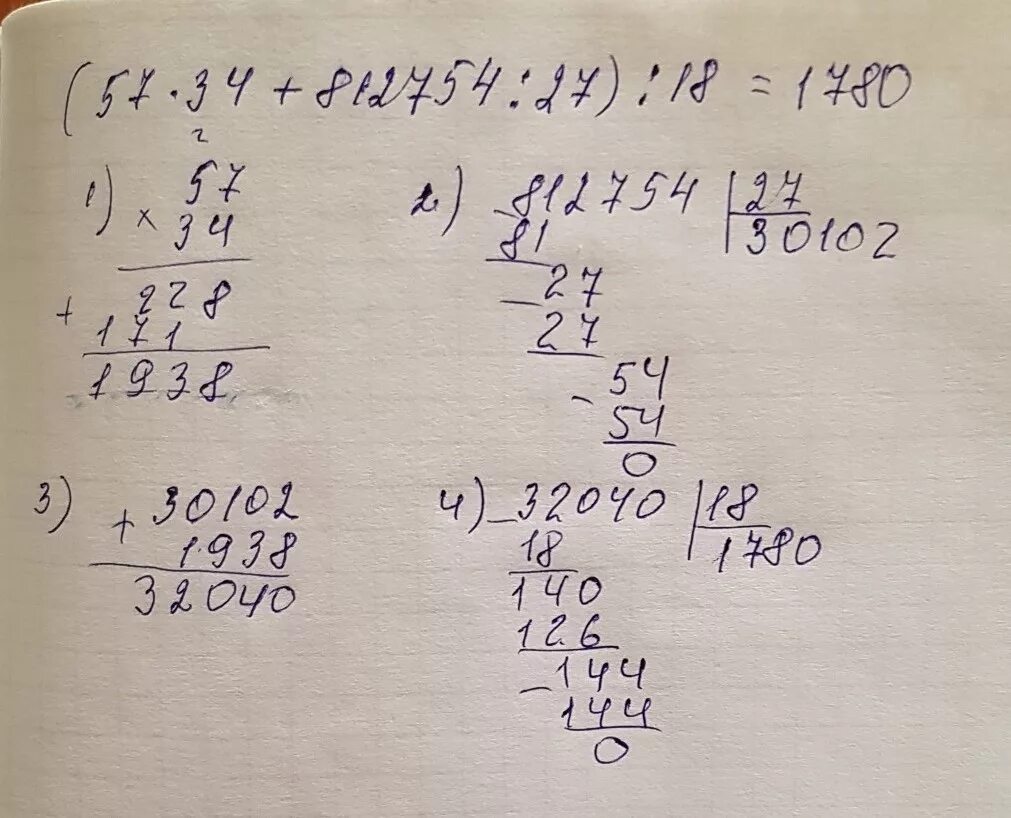 (57·34+812754:27):18=1780
1) 2
57
× 34
+ 228
171
1938
2) -812754 |27
81 30102
-27
27
-54
54
0
3) + 30102
1938
32040
4) -32040 |18
18 1780
140
126
-144
144
0